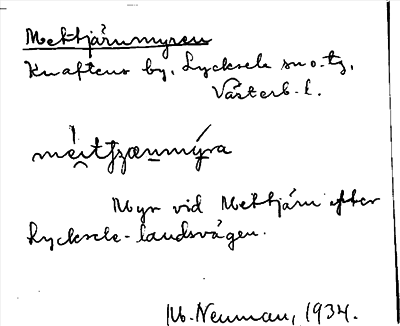 Mettjärnmyren
Knaftens by, Lycksele sn o. tg.
Västerb. l.
Myr vid Mettjärn efter
Lycksele-landsvägen.
Neuman, 1934.